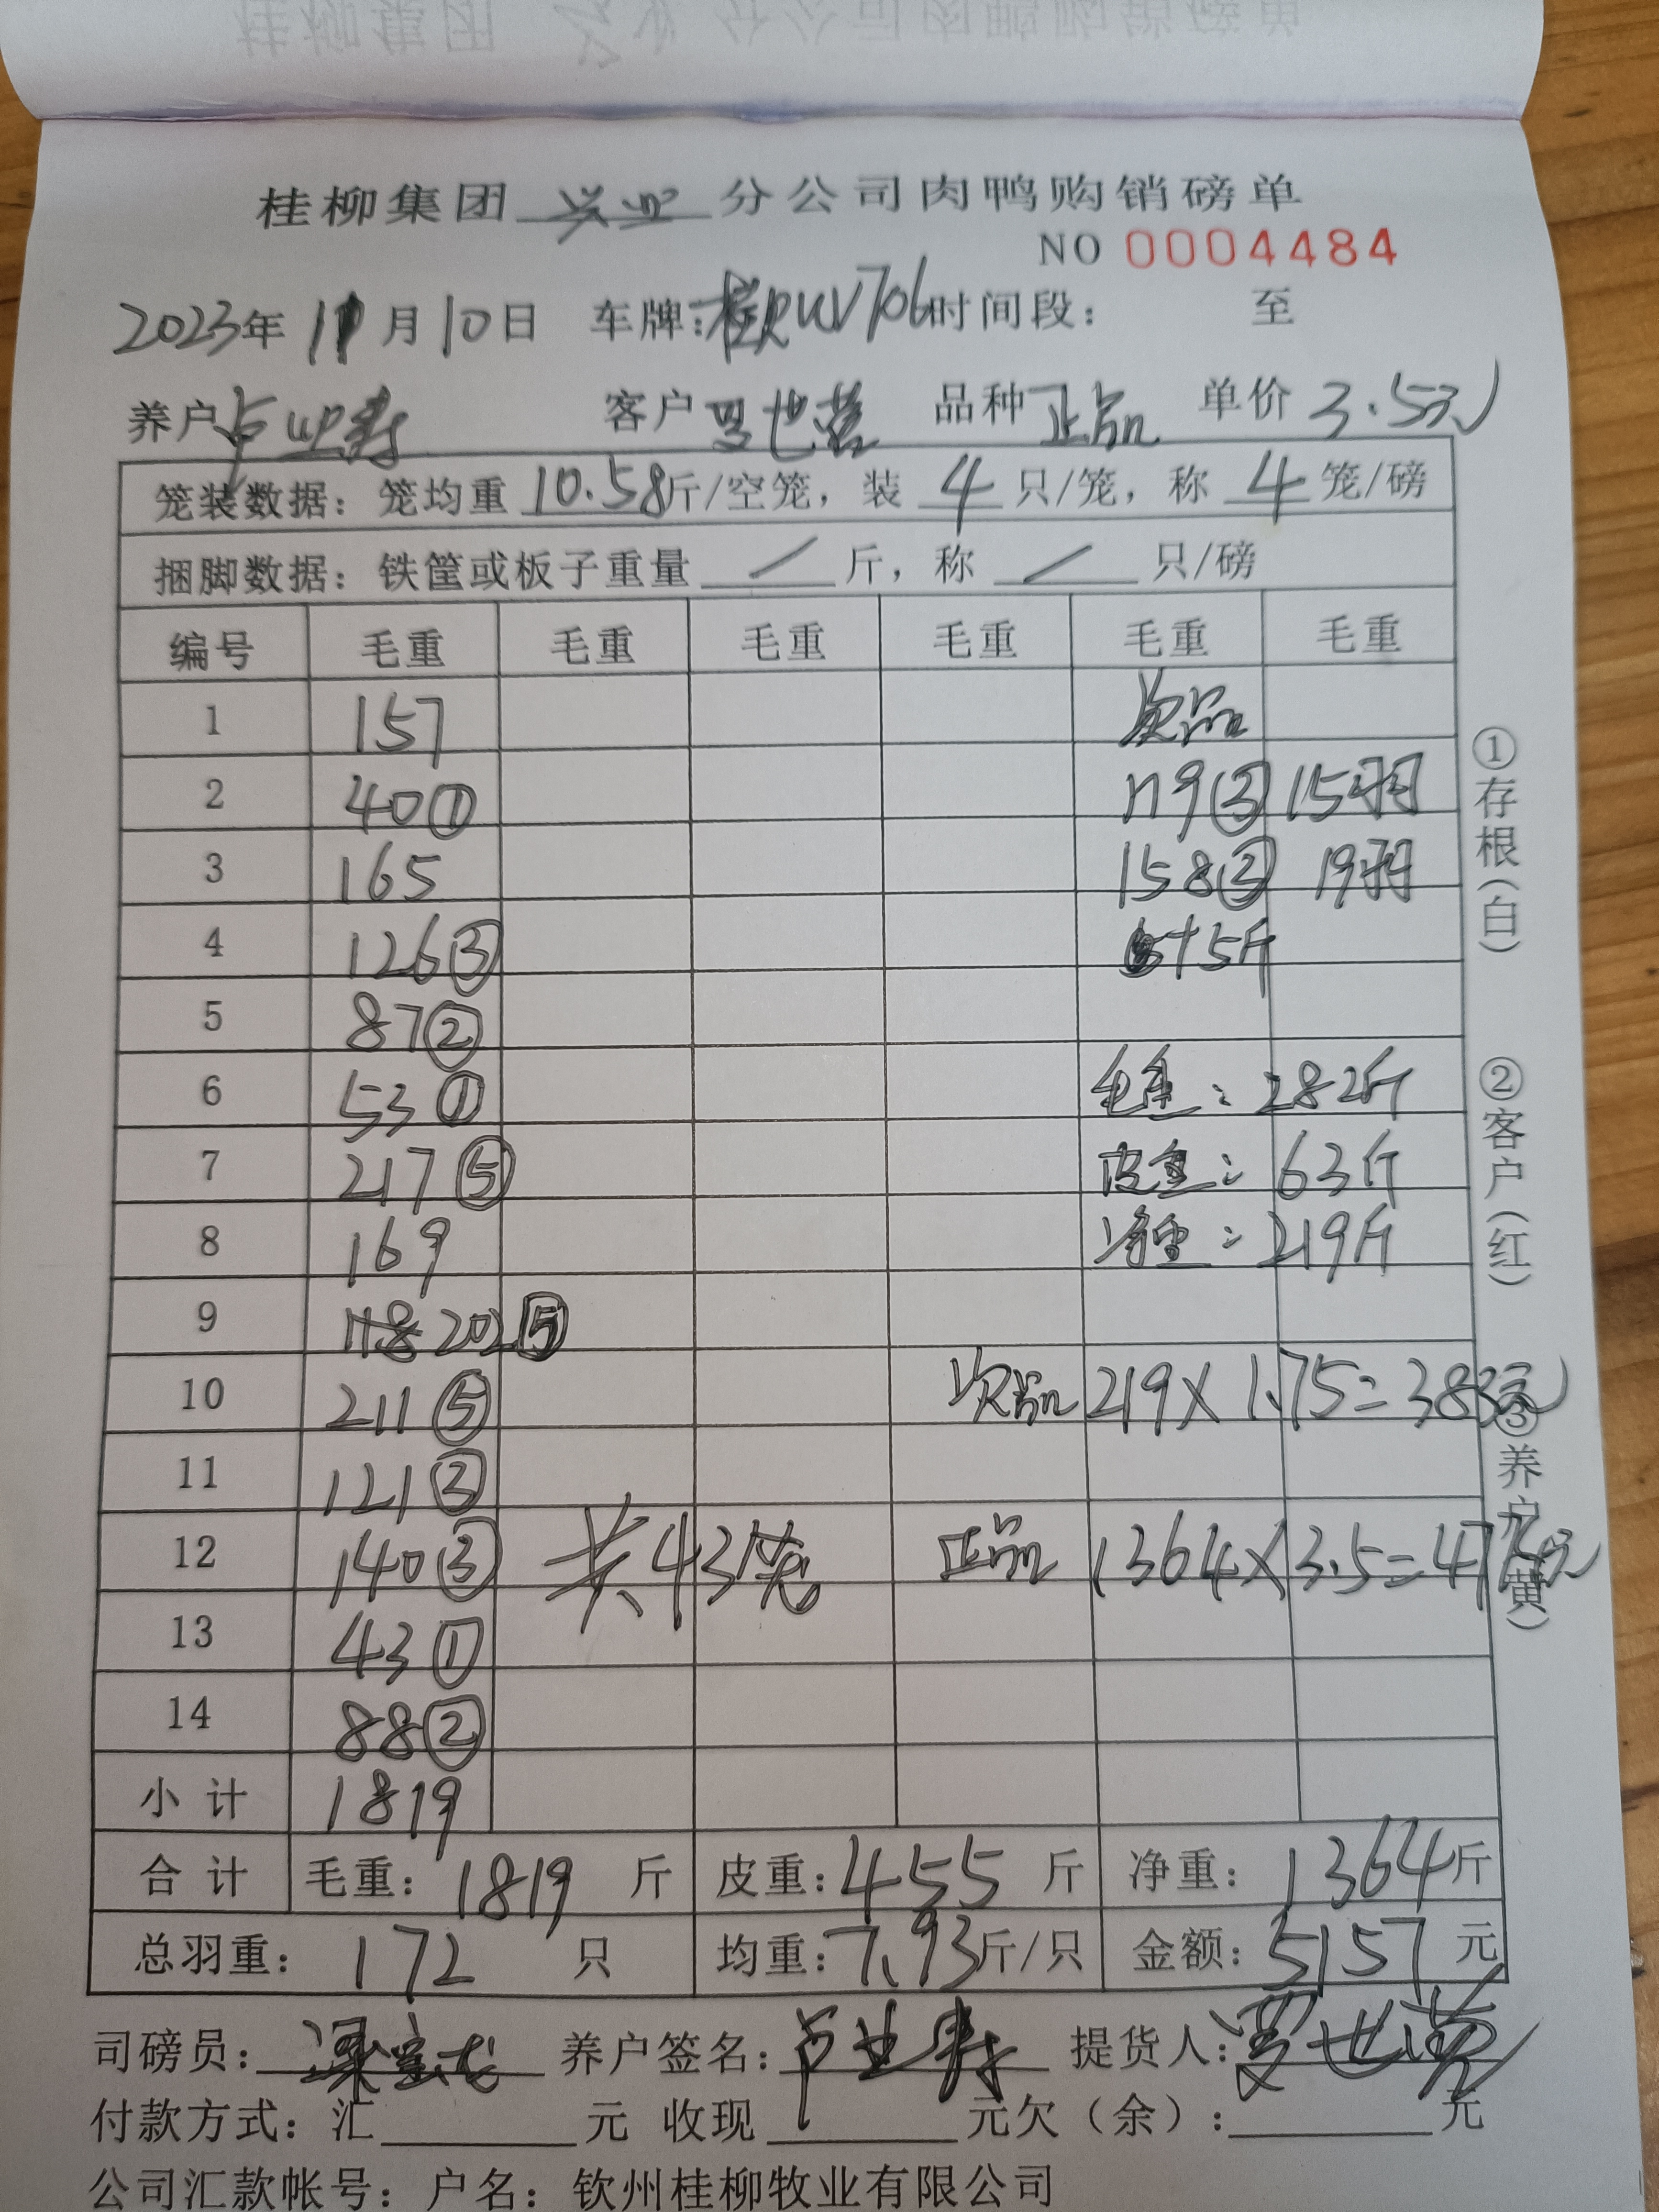 桂柳集团 兴业 分公司肉鸭购销磅单
NO 0004484
2023年 11月10日 车牌:桂RUV706时间段: 至
养户卢业寿 客户罗世营 品种正品 单价3.5元
笼装数据: 笼均重 10.58斤/空笼, 装 4 只/笼, 称 4 笼/磅
捆脚数据: 铁筐或板子重量 / 斤, 称 / 只/磅
编号 毛重 毛重 毛重 毛重 毛重 毛重
1 157 次品
2 40① 119③ 15羽
3 165 158③ 19羽
4 126③ +5斤
5 87②
6 53① 毛重: 282斤
7 217⑤ 皮重: 63斤
8 169 净重: 219斤
9 202⑤
10 211⑤ 次品 219×1.75=383元
11 121③
12 140③ 共43笼 正品 1364×3.5=47元
13 43①
14 88②
小计 1819
合计 毛重: 1819 斤 皮重: 455 斤 净重: 1364斤
总羽重: 172 只 均重: 7.93斤/只 金额: 5157 元
司磅员: 养户签名: 卢业寿 提货人: 罗世营
付款方式: 汇 元 收现 元欠(余): 元
公司汇款帐号: 户名: 钦州桂柳牧业有限公司
①存根(白)
②客户(红)
③养户(黄)